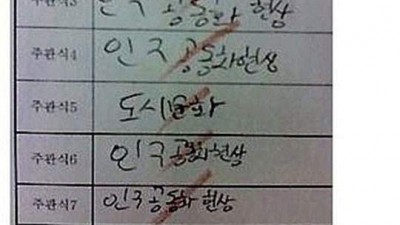 주관식3 인구 공동화 현상
주관식4 인구 공동화현상
주관식5 도시문화
주관식6 인구공동화현상
주관식7 인구공동화 현상